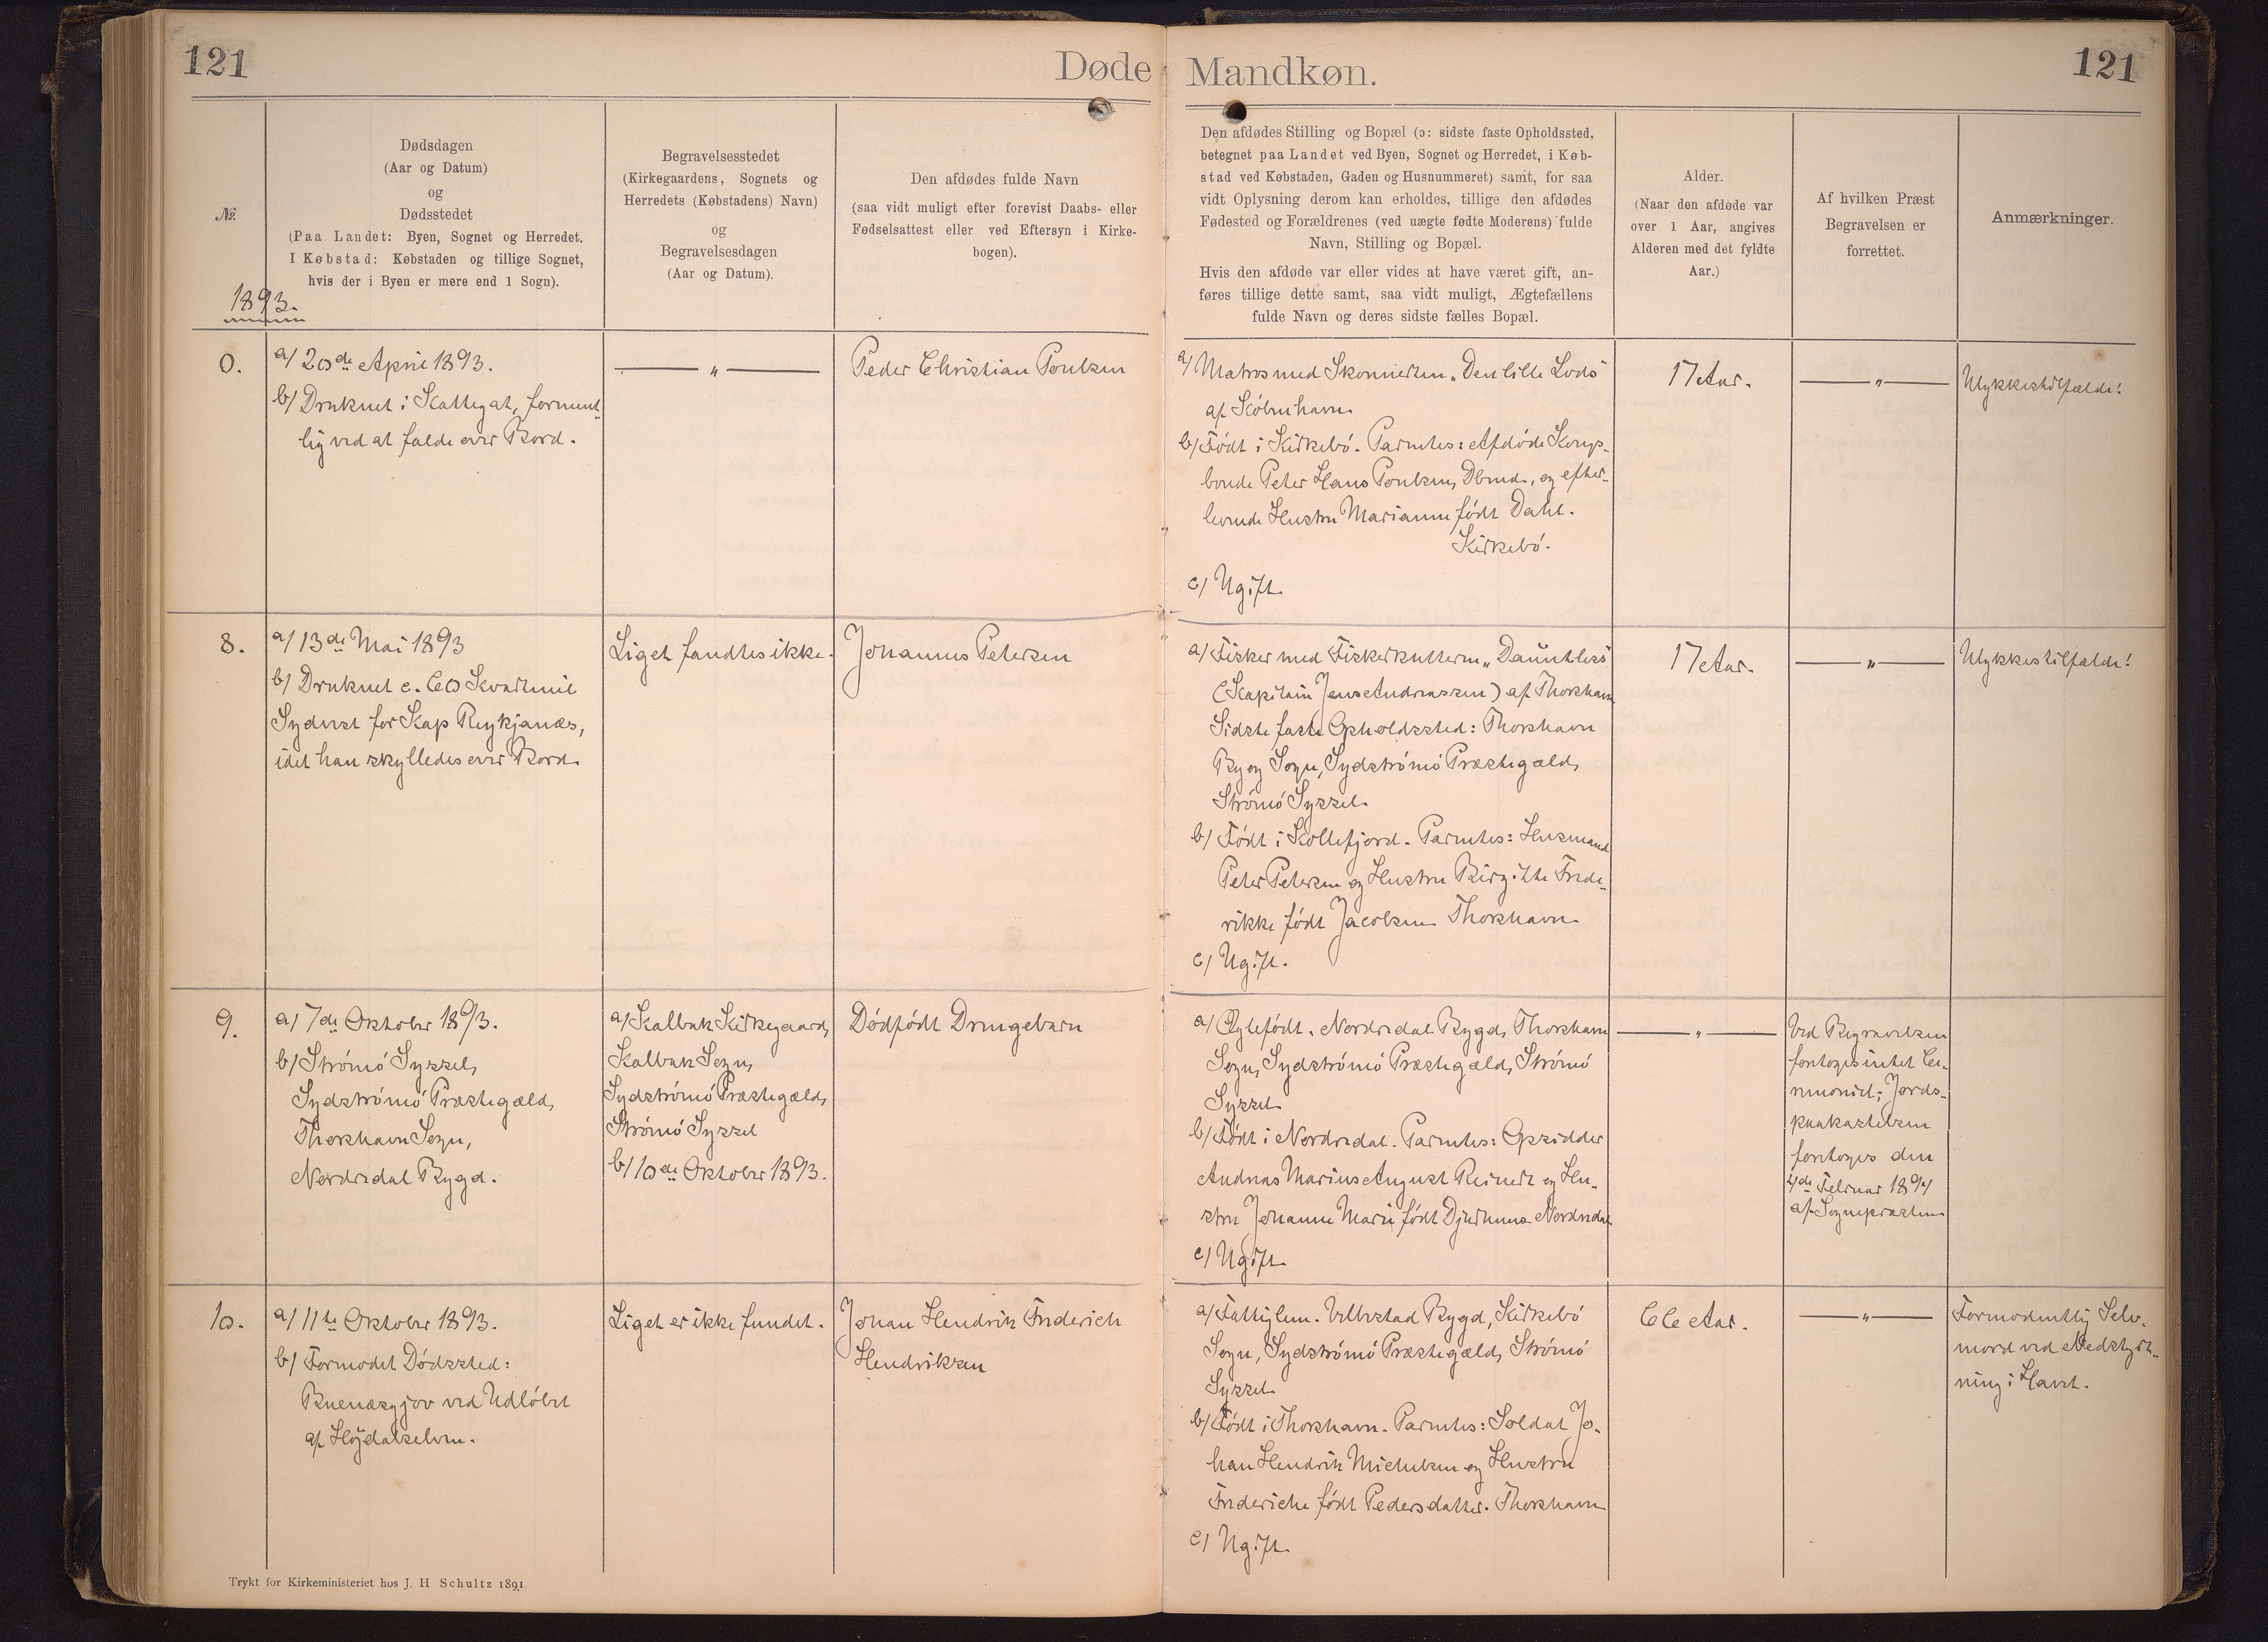 121
Døde
Mandkøn.
121
№
1893.
Dødsdagen
(Aar og Datum)
og
Dødsstedet
(Paa Landet: Byen, Sognet og Herredet.
I Købstad: Købstaden og tillige Sognet,
hvis der i Byen er mere end 1 Sogn).
Begravelsesstedet
(Kirkegaardens, Sognets og
Herredets (Købstadens) Navn)
og
Begravelsesdagen
(Aar og Datum).
Den afdødes fulde Navn
(saa vidt muligt efter forevist Daabs- eller
Fødselsattest eller ved Eftersyn i Kirke-
bogen).
Den afdødes Stilling og Bopæl (ɔ: sidste faste Opholdssted,
betegnet paa Landet ved Byen, Sognet og Herredet, i Køb-
stad ved Købstaden, Gaden og Husnummeret) samt, for saa
vidt Oplysning derom kan erholdes, tillige den afdødes
Fødested og Forældrenes (ved uægte fødte Moderens) fulde
Navn, Stilling og Bopæl.
Hvis den afdøde var eller vides at have været gift, an-
føres tillige dette samt, saa vidt muligt, Ægtefællens
fulde Navn og deres sidste fælles Bopæl.
Alder.
(Naar den afdøde var
over 1 Aar, angives
Alderen med det fyldte
Aar.)
Af hvilken Præst
Begravelsen er
forrettet.
Anmærkninger.
0.
a/ 20de April 1893.
b/ Druknet i Kattegat, forment-
lig ved at falde over Bord.
— " —
Peder Christian Poulsen
a/ Matros med Skonnerten "Den lille Lods"
af Köbenhavn.
b/ Födt i Kirkebö. Parentes: Afdöde Kongs-
bonde Peter Hans Poulsen, Dbmd., og efter-
levende Hustru Marianne födt Dahl.
Kirkebö.
c/ Ugift.
17 Aar.
— " —
Ulykkestilfælde!
8.
a/ 13de Mai 1893
b/ Druknet c. 60 Kvartmil
Sydvest for Kap Reykjanæs,
idet han skylledes over Bord.
Liget fandtes ikke.
Johannes Petersen
a/ Fisker med Fiskerkutteren "Dauntless"
(Kapitain Jens Andreassen) af Thorshavn
Sidste faste Opholdssted: Thorshavn
By og Sogn, Sydströmö Præstegæld,
Strömö Syssel.
b/ Födt i Kollefjord. Parentes: Husmand
Peter Petersen og Hustru Birgitte Frede-
rikke födt Jacobsen Thorshavn.
c/ Ugift.
17 Aar.
— " —
Ulykkestilfælde!
9.
a/ 7de Oktober 1893.
b/ Strömö Syssel,
Sydströmö Præstegæld,
Thorshavn Sogn,
Nordredal Bygd.
a/ Kalbak Kirkegaard,
Kalbak Sogn,
Sydströmö Præstegæld,
Strömö Syssel
b/ 10de Oktober 1893.
Dödfödt Drengebarn
a/ Ægtefödt. Nordredal Bygd, Thorshavn
Sogn, Sydströmö Præstegæld, Strömö
Syssel.
b/ Födt i Nordredal. Parentes: Opsidder
Andreas Marius August Reinert og Hu-
stru Johanne Marie födt Djurhuus Nordredal
c/ Ugift.
— " —
Ved Begravelsen
foretoges intet Ce-
remoniel; Jords-
paakastelsen
foretoges den
4de Februar 1894
af Sognepræsten.
10.
a/ 11te Oktober 1893.
b/ Formodet Dödssted:
af Höjdalselven.
Liget er ikke fundet.
Johan Hendrik Frederich
Hendriksen
a/ Fattiglem. Velbestad Bygd, Kirkebö
Sogn, Sydströmö Præstegæld, Strömö
Syssel.
b/ Födt i Thorshavn. Parentes: Soldat Jo-
han Hendrik Michelsen og Hustru
Frederiche födt Pedersdatter. Thorshavn
c/ Ugift.
66 Aar.
— " —
Formodentlig Selv-
mord ved Nedstyrt-
ning i Havet.
Trykt for Kirkeministeriet hos J. H. Schultz 1891.